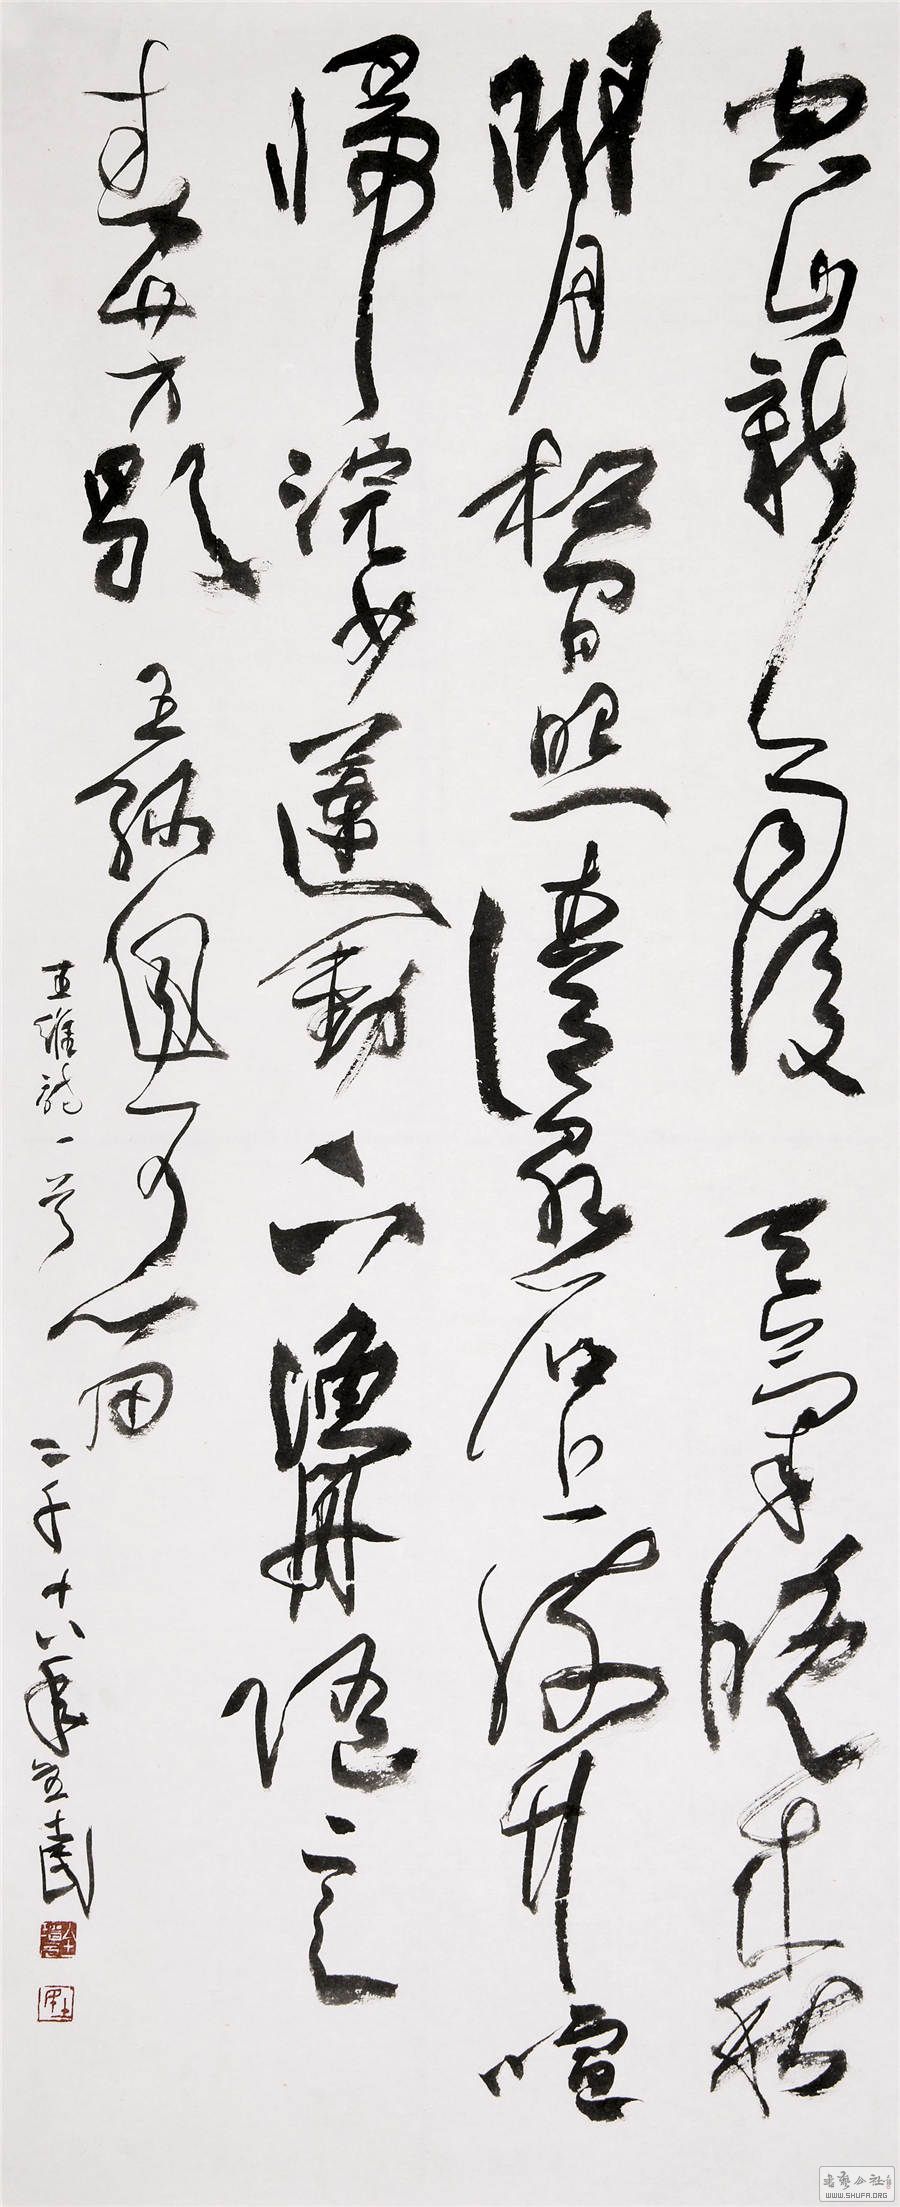 空山新雨後天氣晚來秋
明月松間照清泉石上流竹喧
歸浣女蓮動下漁舟隨意
春芳歇王孫可留
王維詩一首二千十八年
書藝公社
WWW.SHUFA.ORG